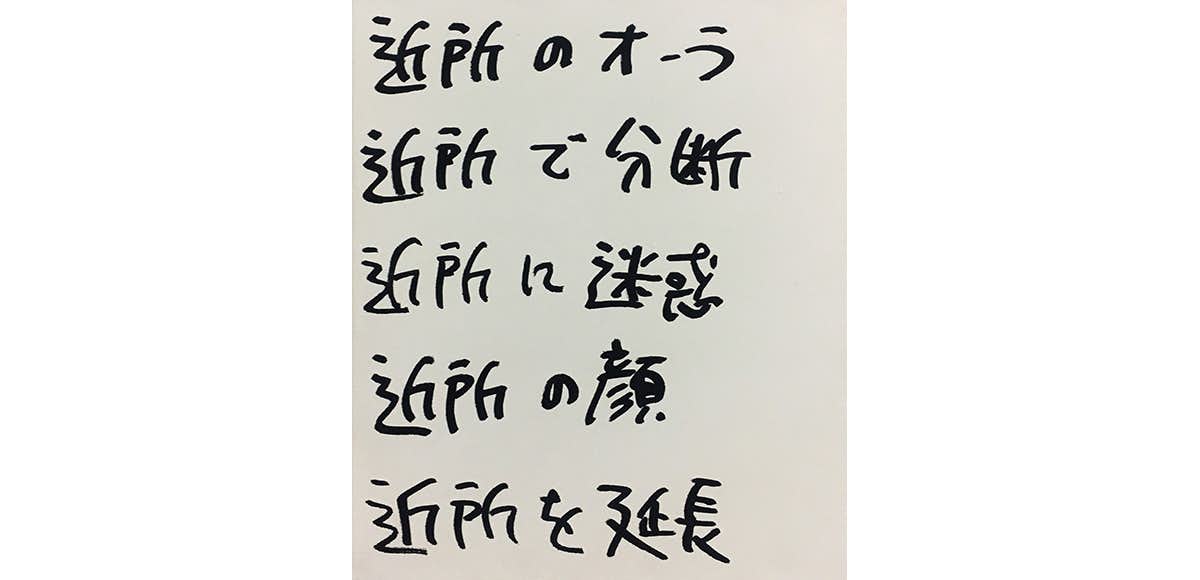 近所のオーラ
近所で分断
近所に迷惑
近所の顔
近所を延長